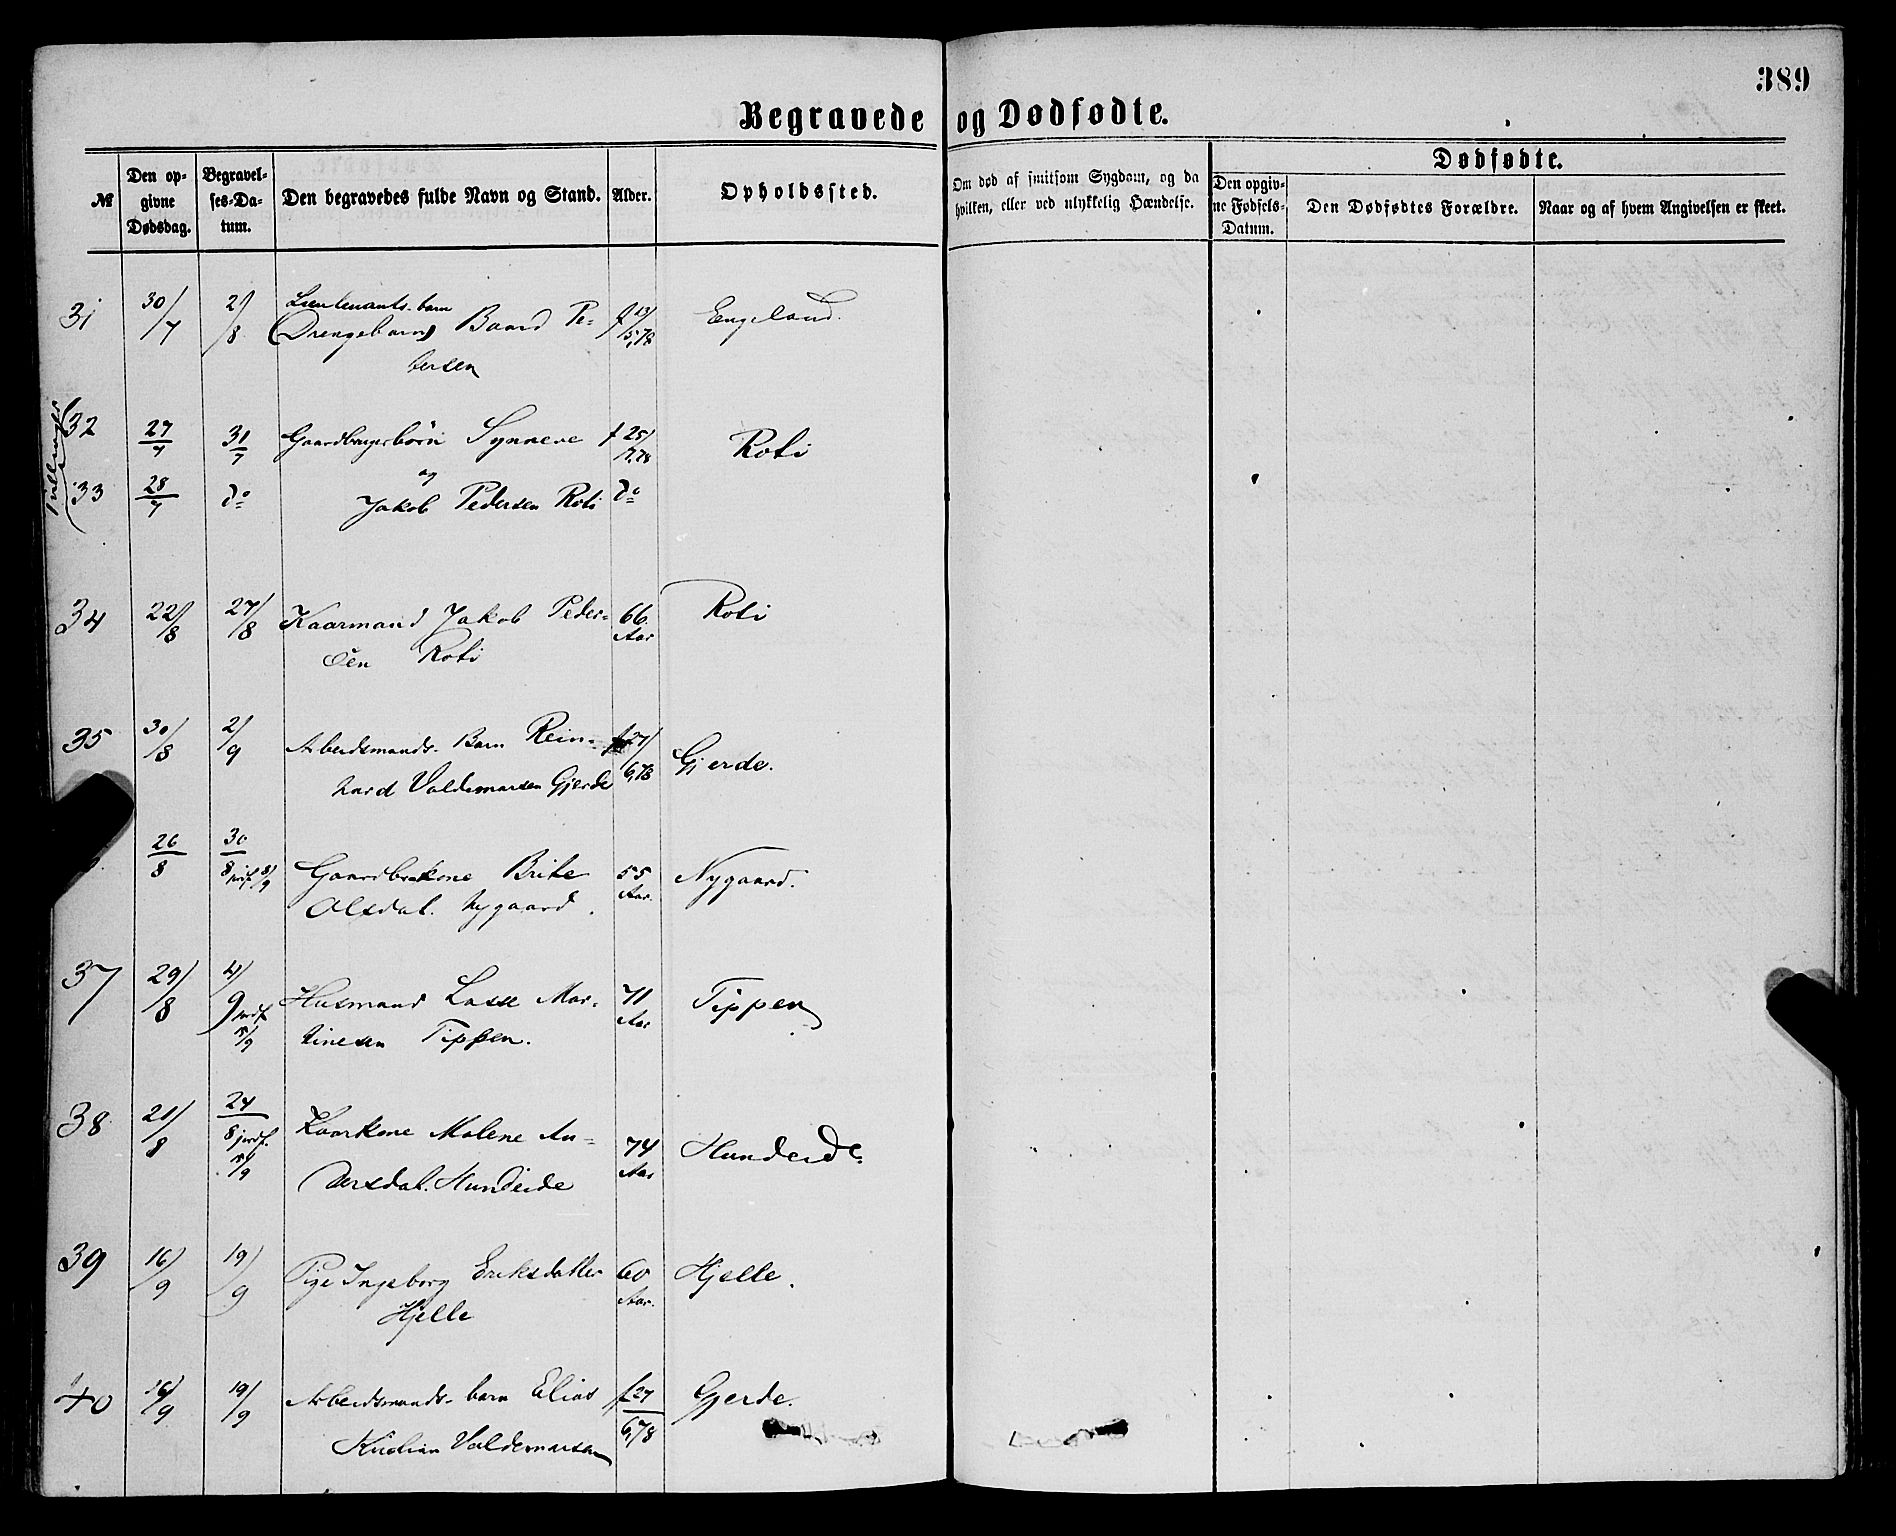 389
Begravede og Dødfødte.
№
Den opgivne Dødsdag.
Begravelses-Datum.
Den begravedes fulde Navn og Stand.
Alder.
Opholdssted.
Om død af smitsom Sygdom, og da hvilken, eller ved ulykkelig Hændelse.
Dødfødte.
Den opgivne Fødsels-Datum.
Den Dødfødtes Forældre.
Naar og af hvem Angivelsen er skeet.
31 30/7 2/8 Lieutenants-barn
(Drengebarn) Baard Pe- f 13/5,78 Engeland.
tersen
Tvillinger
32 27/7 31/7 Gaardbrugerbørn Synneve f 25/7,78 Roti
og
33 28/7 do Jakob Pedersen Roti do
34 22/8 27/8 Kaarmand Jakob Peder- 66 Aar Roti
sen Roti
35 30/8 2/9 Arbeidsmands-Barn Rein- f 27/6,78 Gjerde.
hard Valdemarsen Gjerde
26/8 30/8 jordf. 8/9 Gaardbrkone Brite 55 Aar. Nygaard.
Olsdat. Nygaard.
37 29/8 4/9 jordf. 5/9 Husmand Lasse Mar- 71 Aar Tippen
tinesen Tippen.
38 21/8 24/8 jordf. 5/9 Kaarkone Malene An- 74 Aar Hundeide
dersdat. Hundeide
39 16/9 19/9 Pige Ingeborg Eriksdatter 60 Aar. Hjelle.
Hjelle
40 16/9 19/9 Arbeidsmands-barn Elias f 27/6,78 Gjerde.
Kristian Valdemarsen